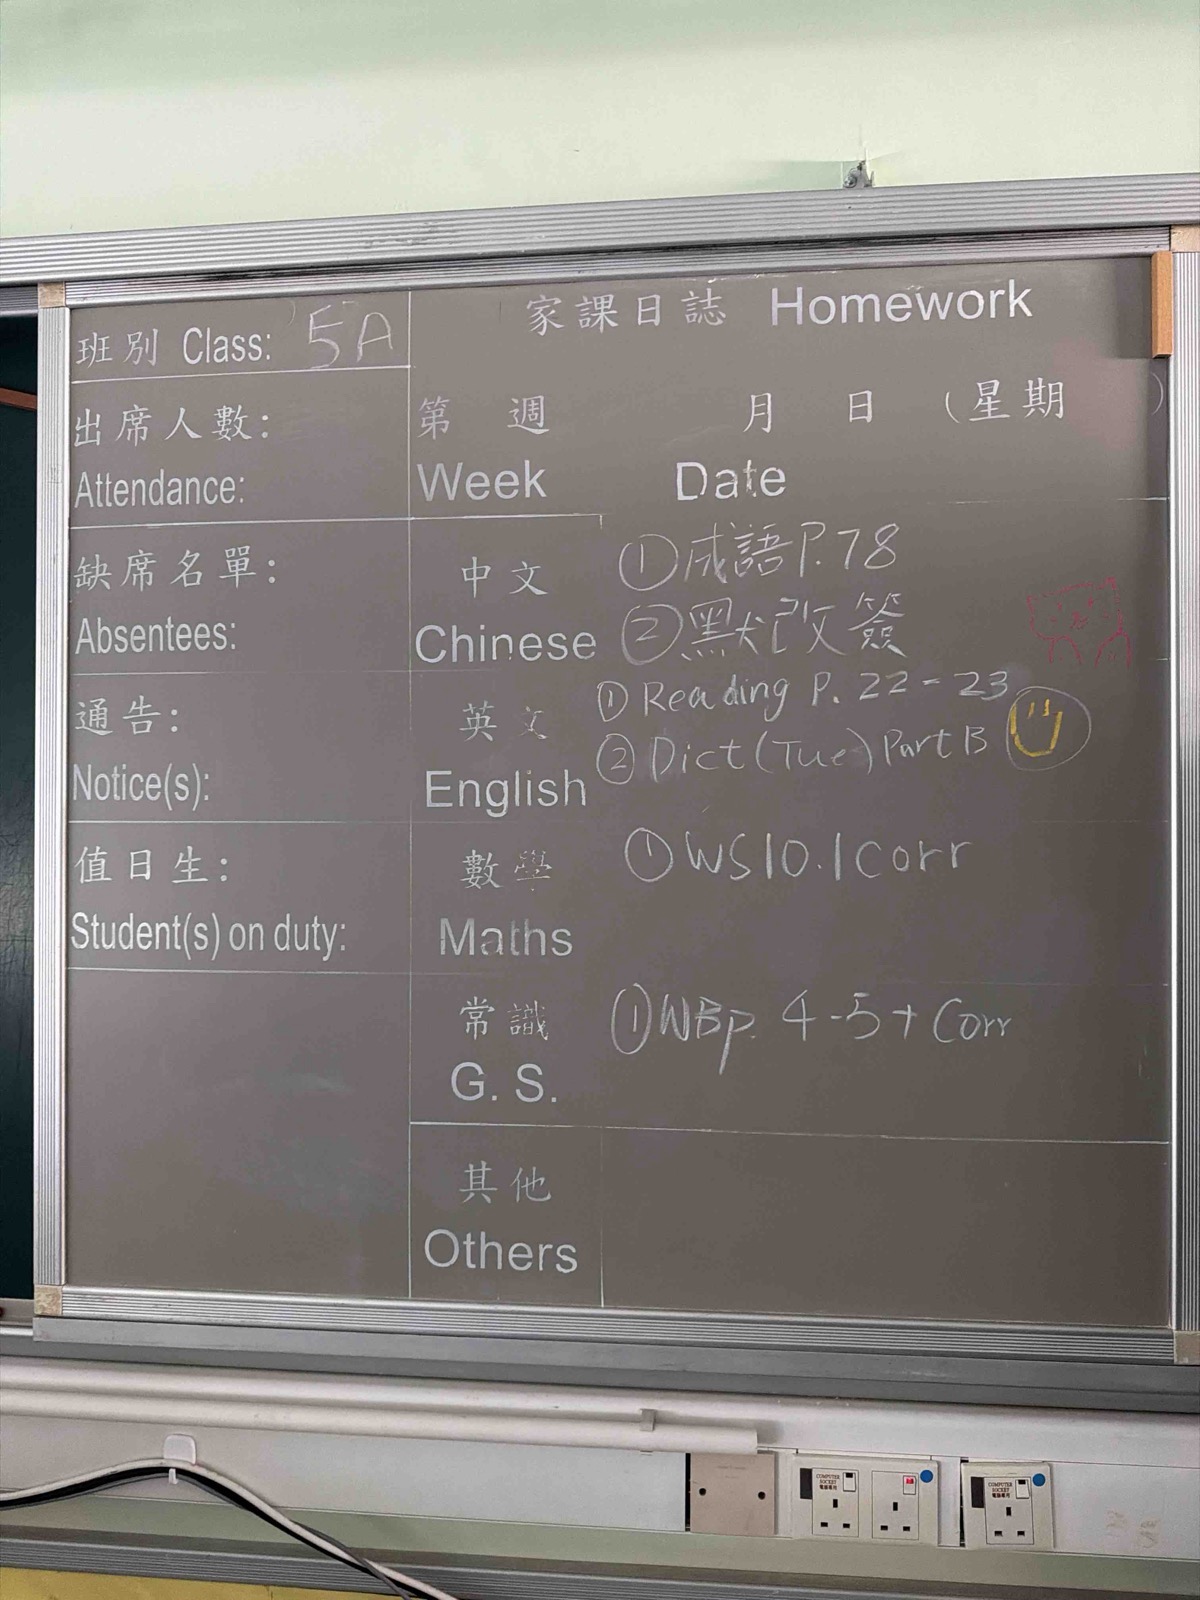 家課日誌 Homework
班別 Class: 5A
出席人數:
Attendance:
第 週 月 日 (星期 )
Week Date
缺席名單:
Absentees:
中文
Chinese
①成語P.78
②默改簽
通告:
Notice(s):
英文
English
① Reading P. 22-23
② Dict (Tue) Part B
值日生:
Student(s) on duty:
數學
Maths
①WS10.1corr
常識
G. S.
①WBp. 4-5+Corr
其他
Others
COMPUTER
SOCKET
電腦專用
COMPUTER
SOCKET
電腦專用